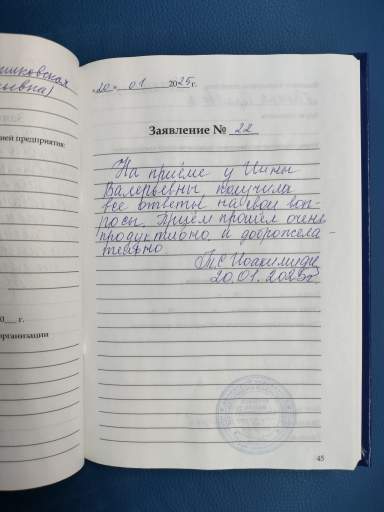 шковская
ьевна)
ией предприятия:
0___ г.
организации
«20» 01 2025 г.
Заявление № 22
На приёме у Инны
Валерьевны получила
все ответы на свои воп-
росы. Приём прошёл очень
продуктивно и доброжела-
тельно.
20.01.2025г
45